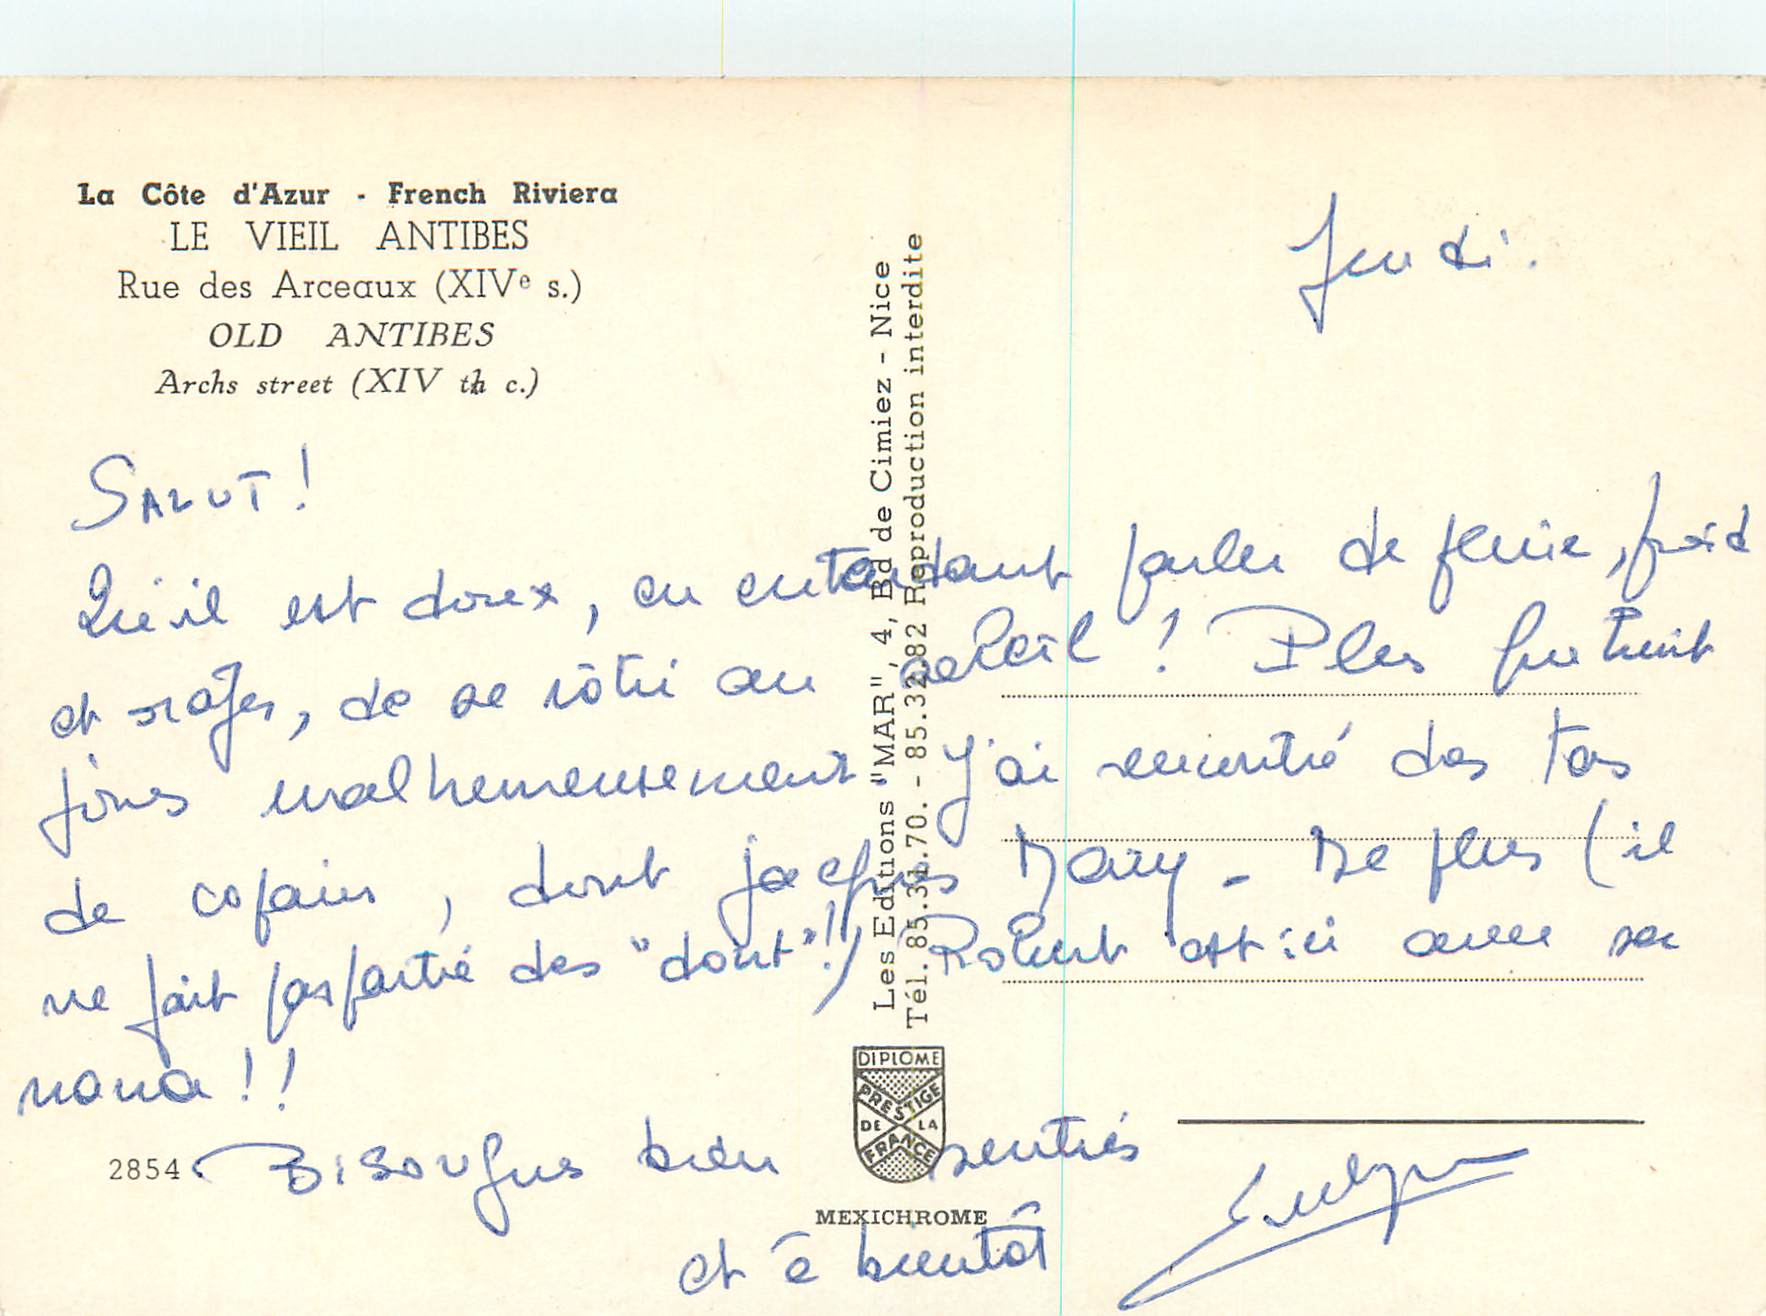 La Côte d'Azur - French Riviera
LE VIEIL ANTIBES
Rue des Arceaux (XIVe s.)
OLD ANTIBES
Archs street (XIV th c.)
Jeudi.
SALUT !
Qu'il est doux, en entendant parler de pluie, froid
et orages, de se rôtir au soleil ! Plus que huit
jours malheureusement J'ai rencontré des tas
de copains, dont jacques Mary - De plus (il
ne fait pas partie des "dont"!!) Robert est ici avec sa
nana !!
Bisouques bien sentis
et à bientôt
Les Editions "MAR", 4, Bd de Cimiez - Nice
Tél. 85.31.70. - 85.32.82 Reproduction interdite
DIPLOME
PRESTIGE
DE LA
FRANCE
2854
MEXICHROME